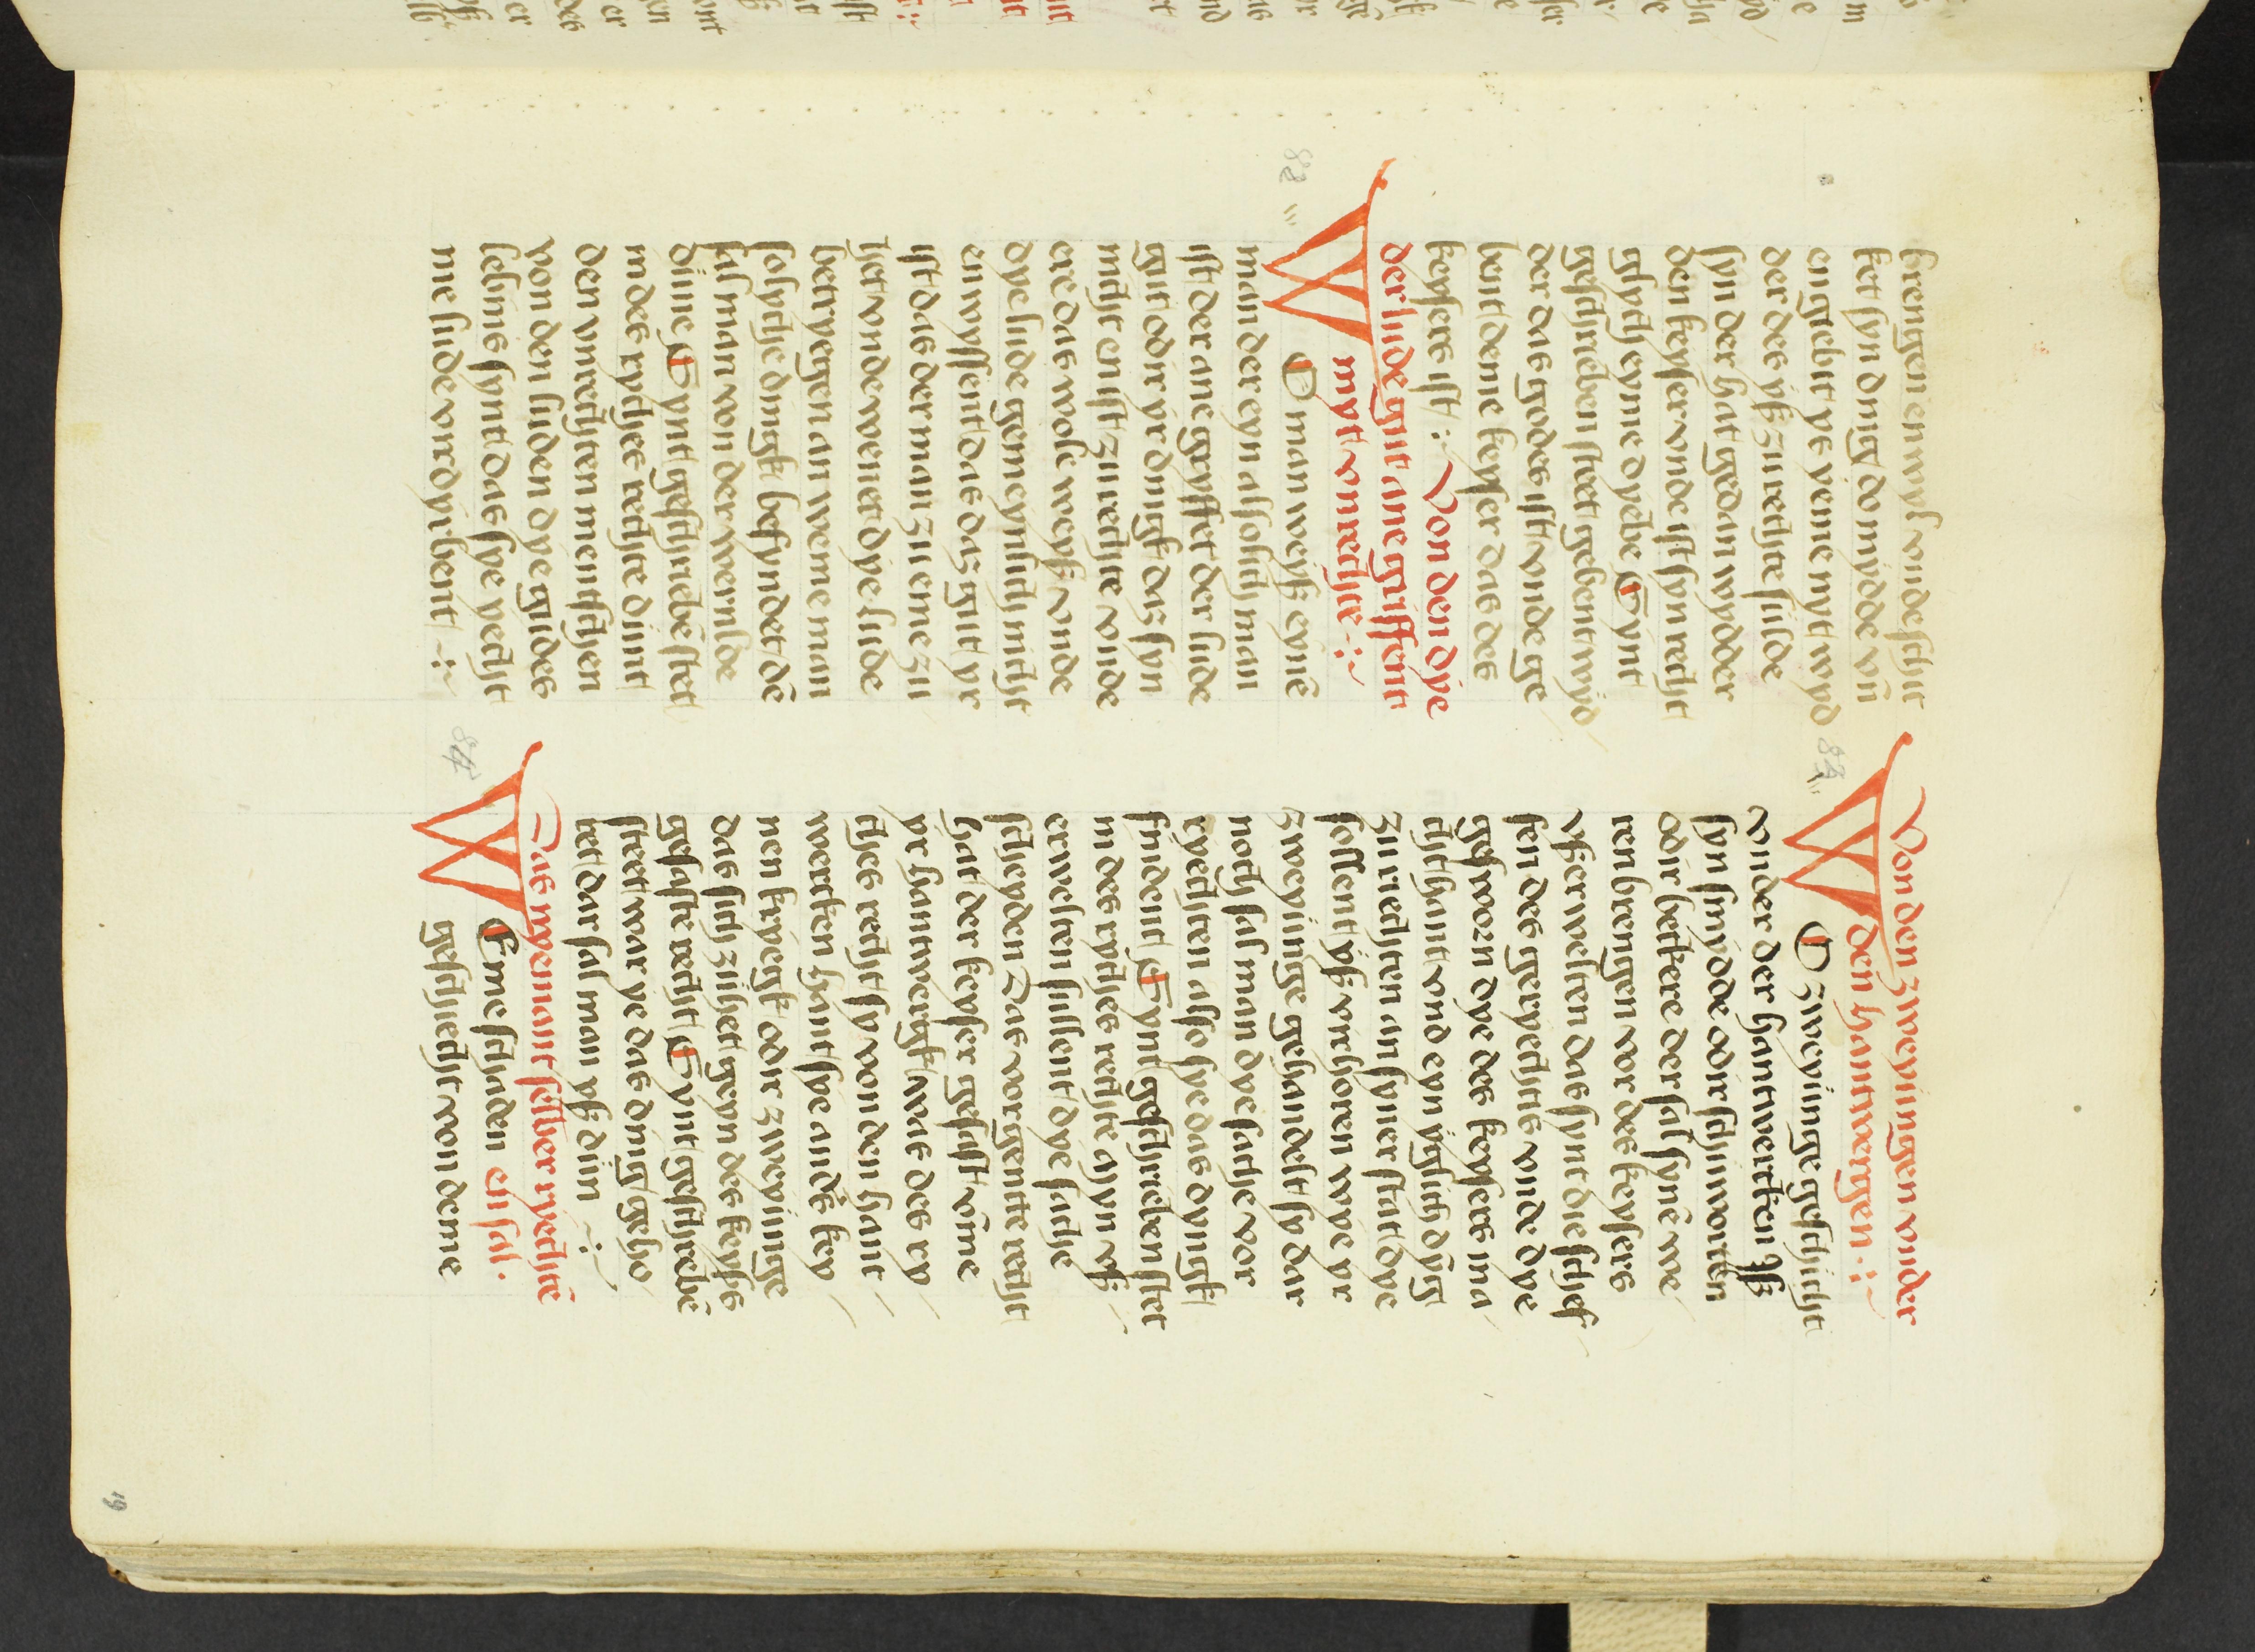 brengen en wyl vnde schir
ket syn dnig do mydde vñ
en gebit ys yeme nyt wyd
der des yß zu rechte sulde
syn der hat gedan wydder
den keyser vnde ist syn recht
glych eyme dyebe Synt
geschrieben stet gebent wyd
der das godes ist vnde ge
bent deme keyser das des
keysers ist :· Von den dye
der lude gut ane griffent
myt vnrechte ·:~
82
WO man weyß eynē
man der eyn assolich man
ist der ane gryffet der lude
gut odir yr dingk das syn
nicht en ist zu rechte vnde
ere das wole weyß vnde
dye lude gemeynlich nicht
en wyssent das daz gut yr
ist das der man zu eme zu
het vnde wenet dye lude
betryegen an weme man
soliche dingk befyndet dē
sal man von der wernlde
dūne Synt geschriebē stet
in des ryches rechte dunt
den vnrechten menschen
von den luden dye gudes
lebins synt das sye yecht
me lude vordyrbent ·:~
Von den zweyungen vnder
den hantwergen ·:~
83
WO zweyunge geschicht
vnder der hantwerken Iß
syn smydde odir schuworten
odir bekkere der sal synē we
ren brengen vor des keysers
vßerwelten das synt die schef
fen des geryechtes vnde dye
geswozn dye des keysers ma
cht hant vnd eyn yglich dyg
zu rechten an syner stat dye
sollent yß vorhoren wye yr
zweyunge gehandelt sy dar
noch sal man dye sache vor
ryechten also sye das dyngk
findent Synt geschrieben stet
in des ryches rechte alyn vß
erwelten sullent dye sache
scheyden Das vorgente recht
hat der keyser gesast vōme
yr hantwergk was des ry
ches recht sy von den hant
werken hant sye andḗs key
nen kryegk odir zweyunge
das sich zuhet geyn des keysßs
gesaste recht Synt geschrebē
stet war ye das dnig geho
ret dar sal man yß dun ·:~
Das nyemant selber ryechtē
en sal ·
84
WEme schaden
geschiecht von deme
19